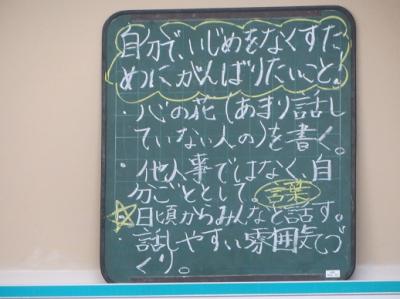 自分で、いじめをなくすた
めにがんばりたいこと。
・心の花(あまり話し
ていない人の)を書く。
・他人事ではなく、自
分ごととして。言葉
☆日頃からみんなと話す。
・話しやすい雰囲気づ
くり。